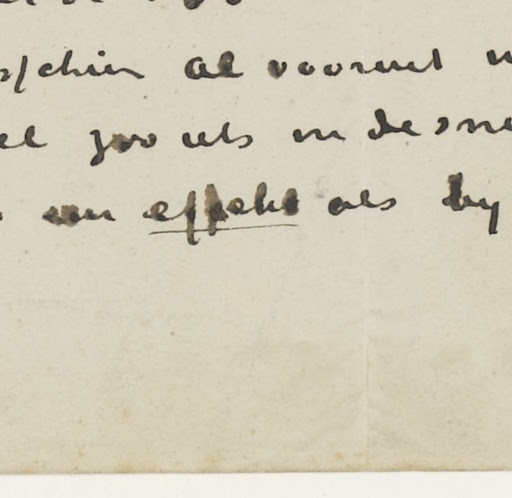 sschien al vooruit
el zoo iets in de sne
een effekt als by